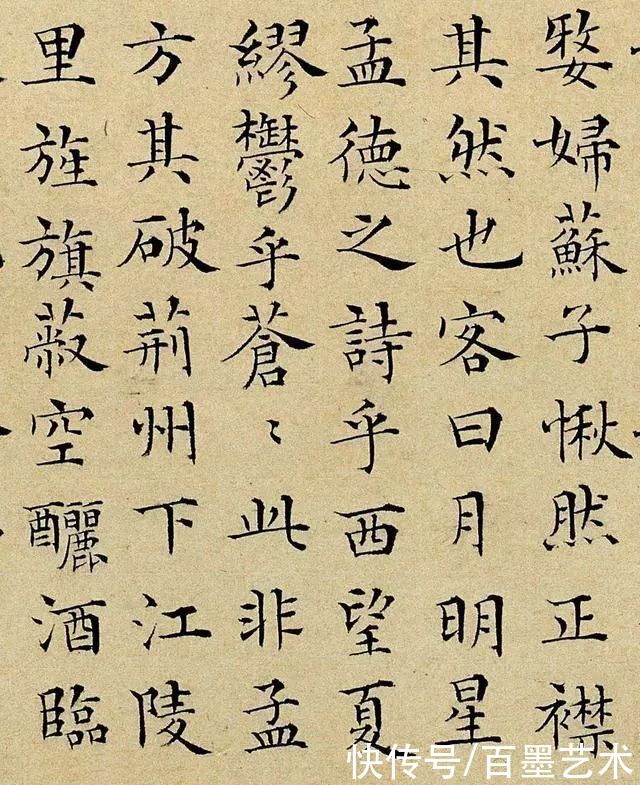 嫠婦蘇子愀然正襟
其然也客曰月明星
孟德之詩乎西望夏
繆鬱乎蒼〻此非孟
方其破荊州下江陵
里旌旗蔽空釃酒臨
快传号/百墨艺术